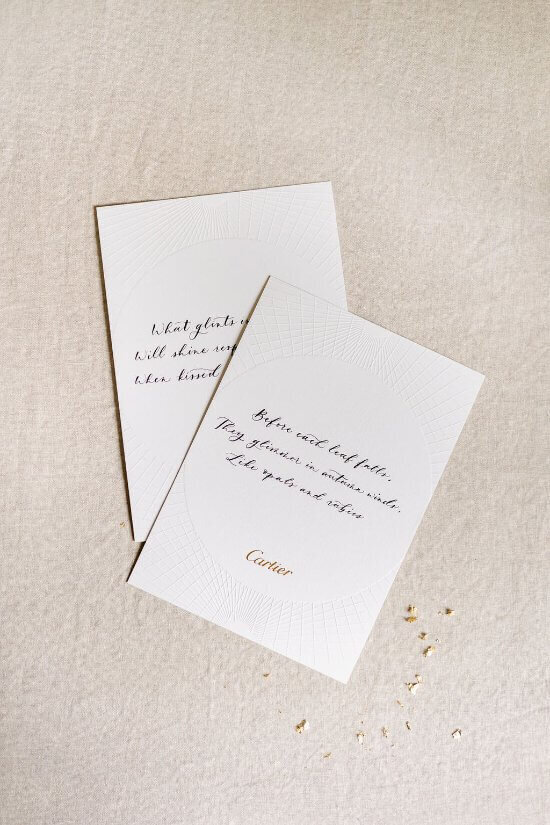 What glints
Will shine
When kissed
Before each leaf falls,
They glimmer in autumn winds,
Like opals and rubies
Cartier